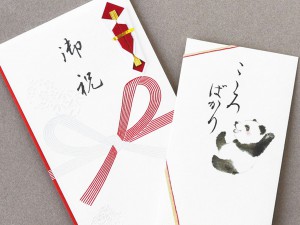 御祝
こころ
ばかり